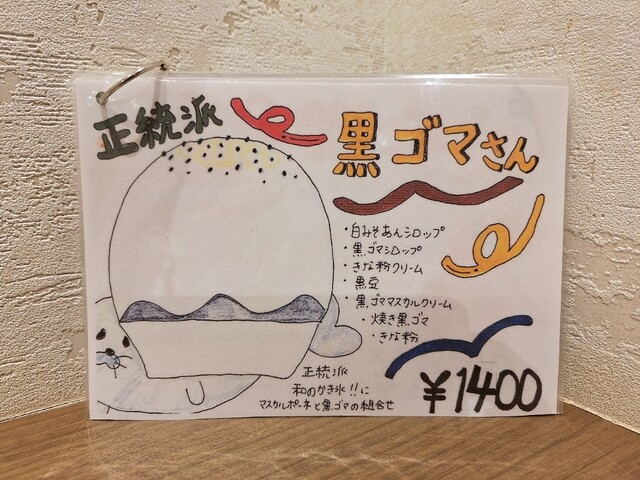 正統派
黒ゴマさん
・白みそあんシロップ
・黒ゴマシロップ
・きな粉クリーム
・黒豆
・黒ゴママスカルクリーム
・焼き黒ゴマ
・きな粉
正統派
和のかき氷!!に
マスカルポーネと黒ゴマの組合せ
¥1400